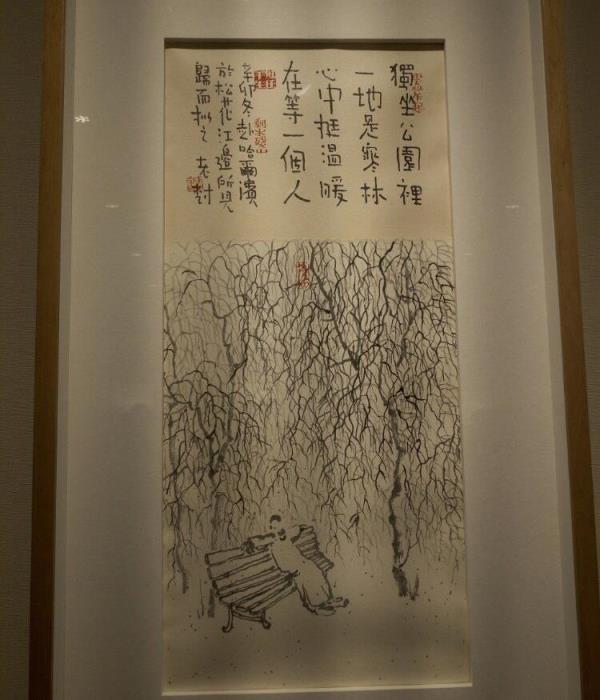 獨坐公園裡
一地是寒林
心中挺溫暖
在等一個人
辛卯冬赴哈爾濱
於松花江邊所見
歸而擬之 老樹